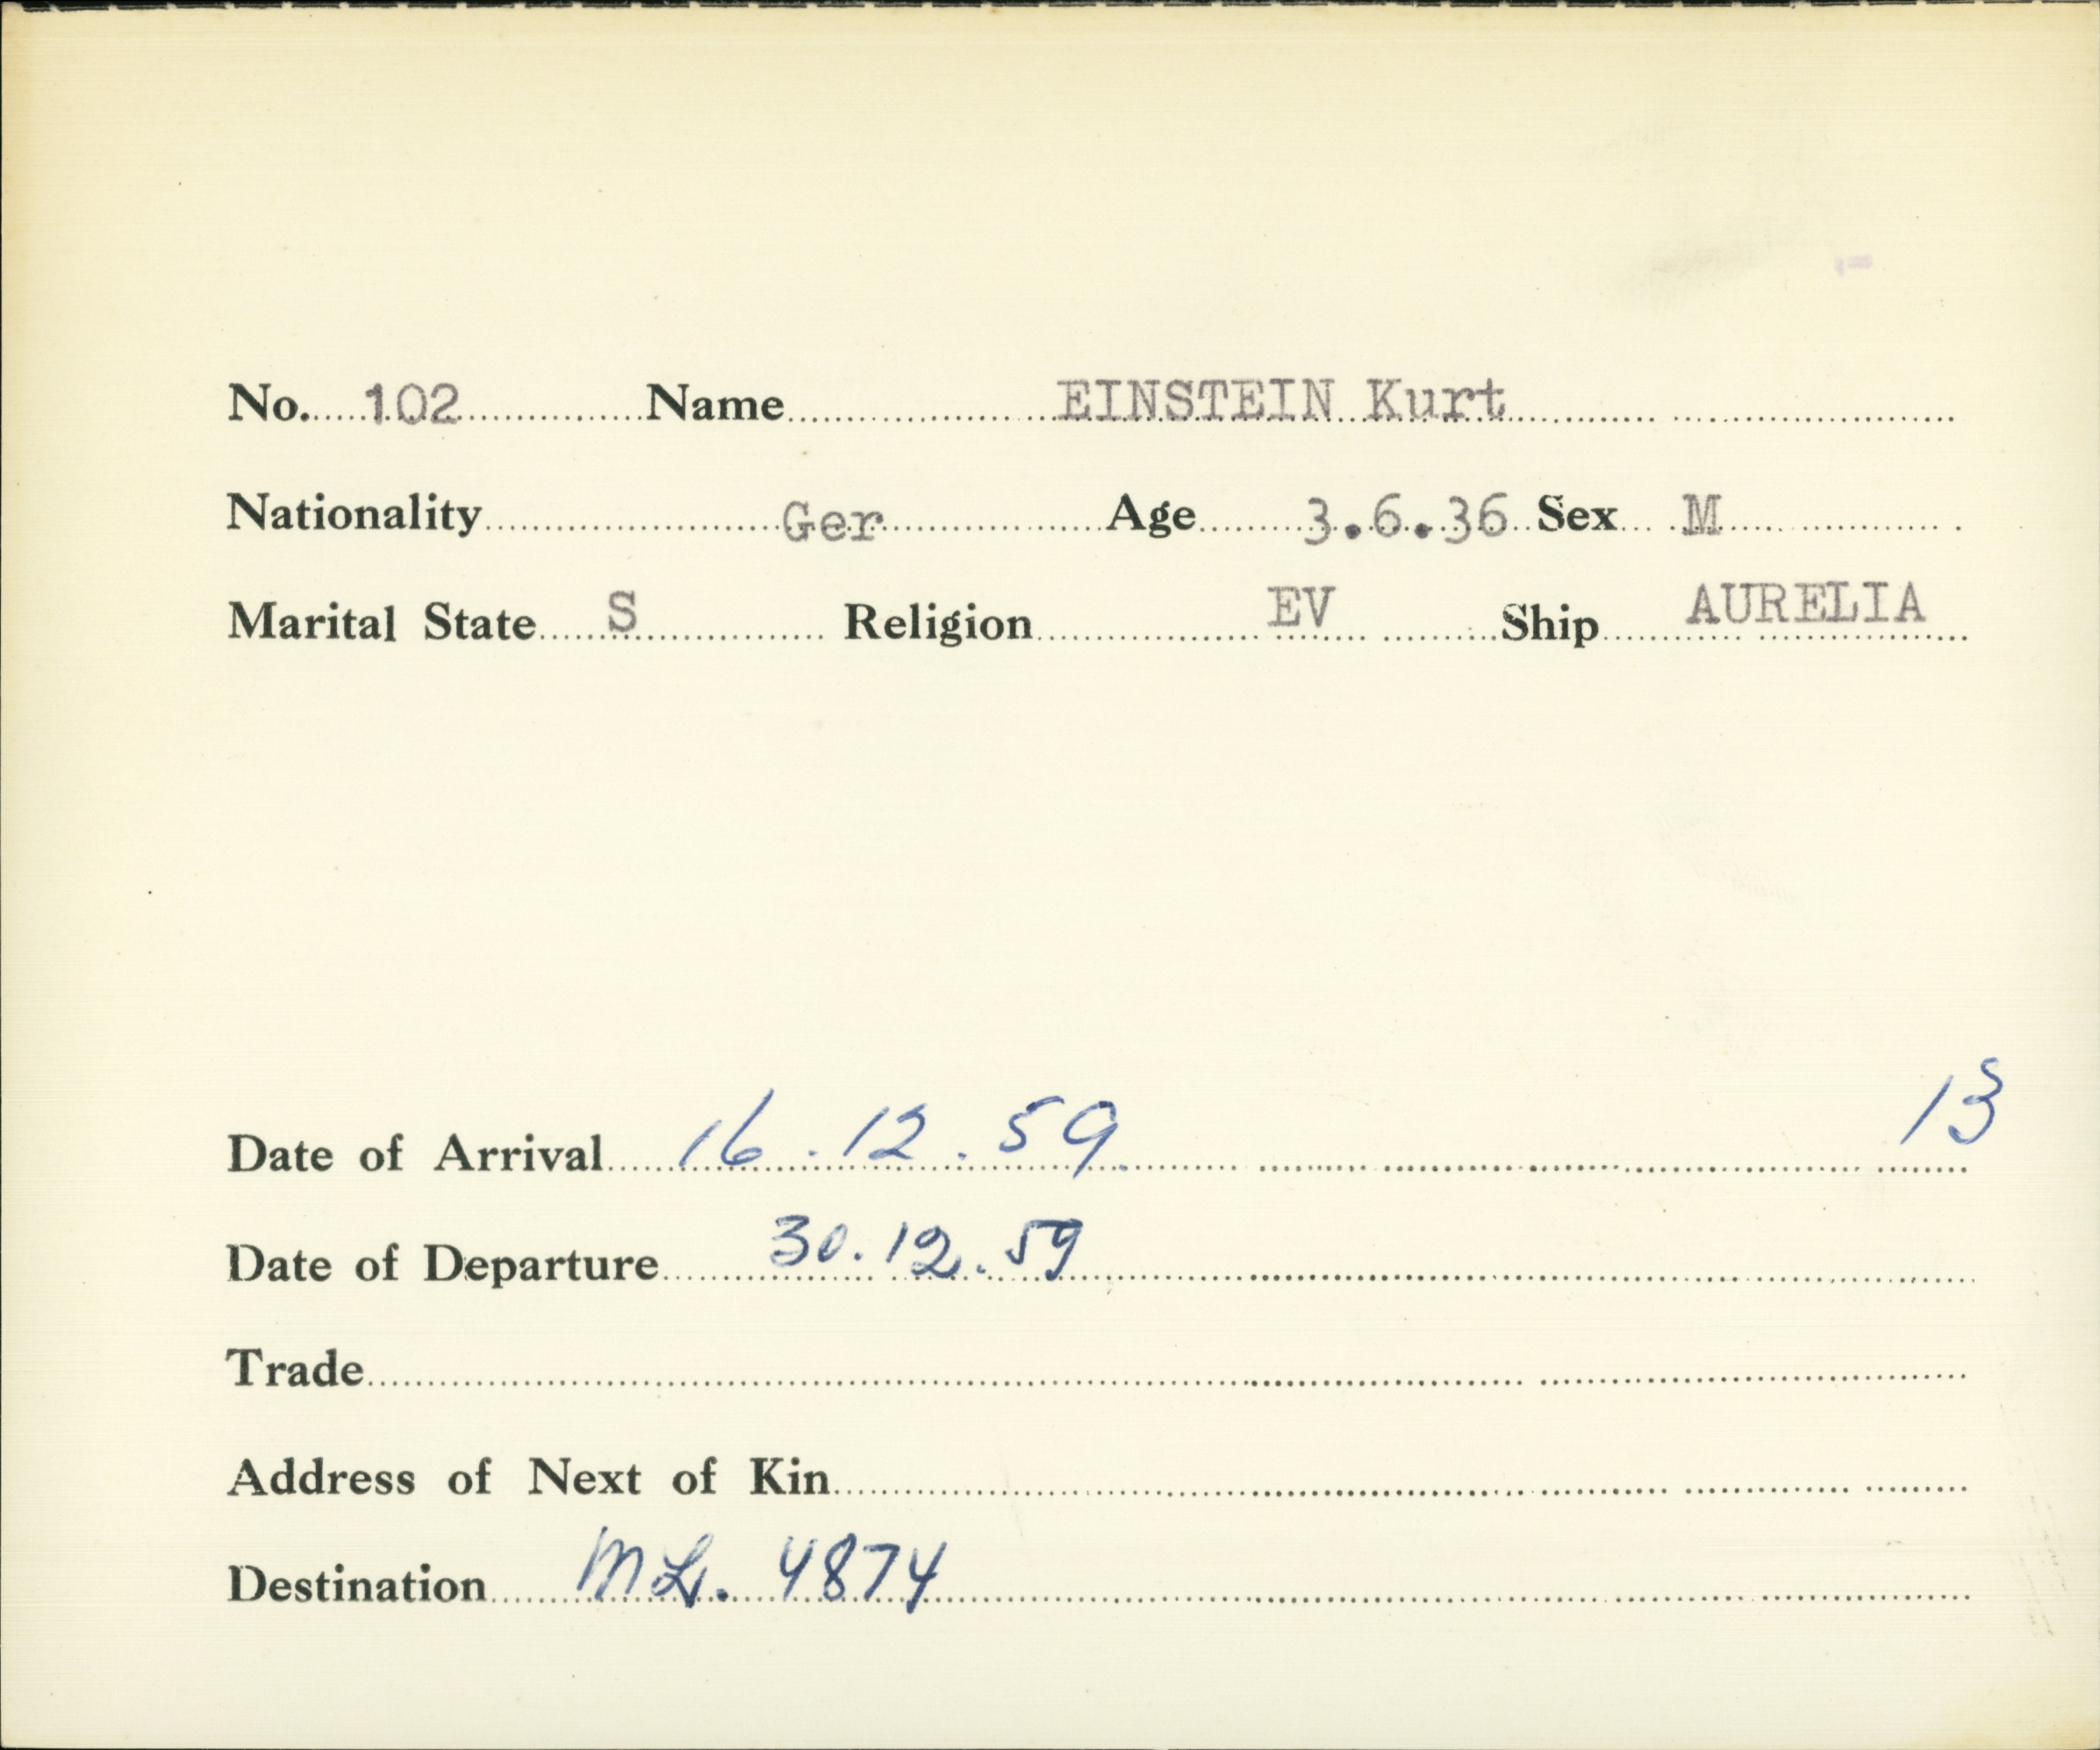 No. 102 Name EINSTEIN Kurt
Nationality Ger Age 3.6.36 Sex M
Marital State S Religion EV Ship AURELIA
13
Date of Arrival 16.12.59
Date of Departure 30.12.59
Trade
Address of Next of Kin
Destination ML. 4874